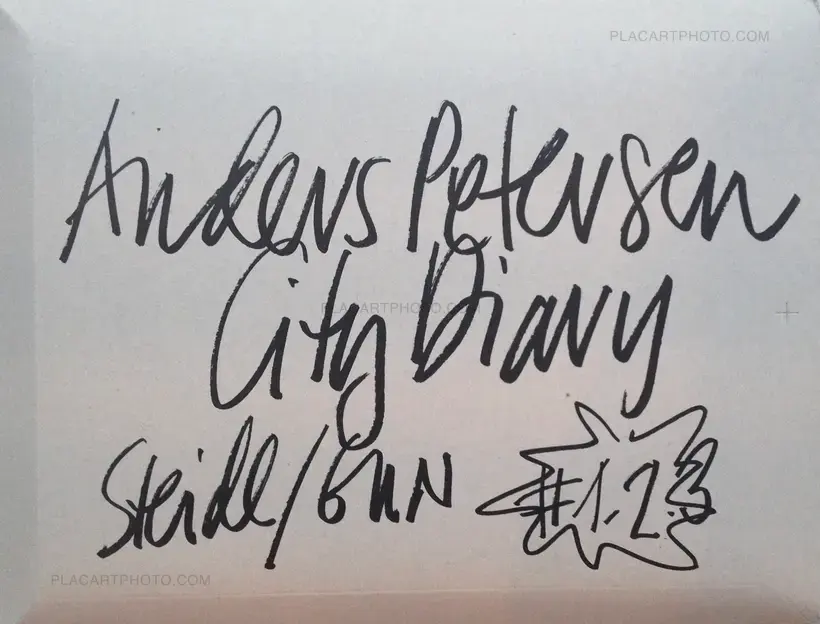 PLACARTPHOTO.COM
Anders Petersen
City Diary
PLACARTPHOTO.COM
Steidl/GUN #1.2.3
PLACARTPHOTO.COM